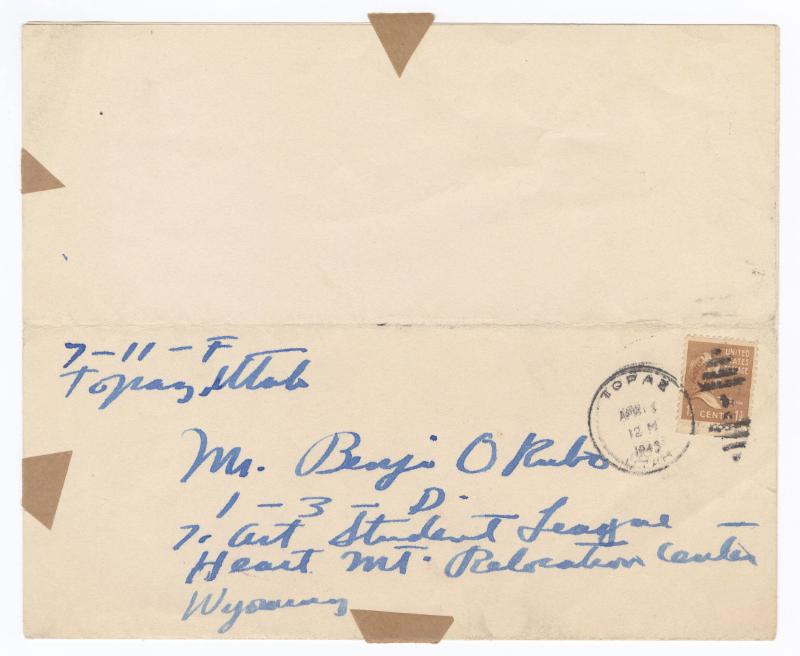 7-11-F
Topaz, Utah
UNITED
STATES
POSTAGE
1½ CENTS 1½
TOPAZ
12 M
1943
UTAH
Mr. Benji Okubo
1-3-D.
7. Art Student League
Heart Mt. Relocation Center
Wyoming